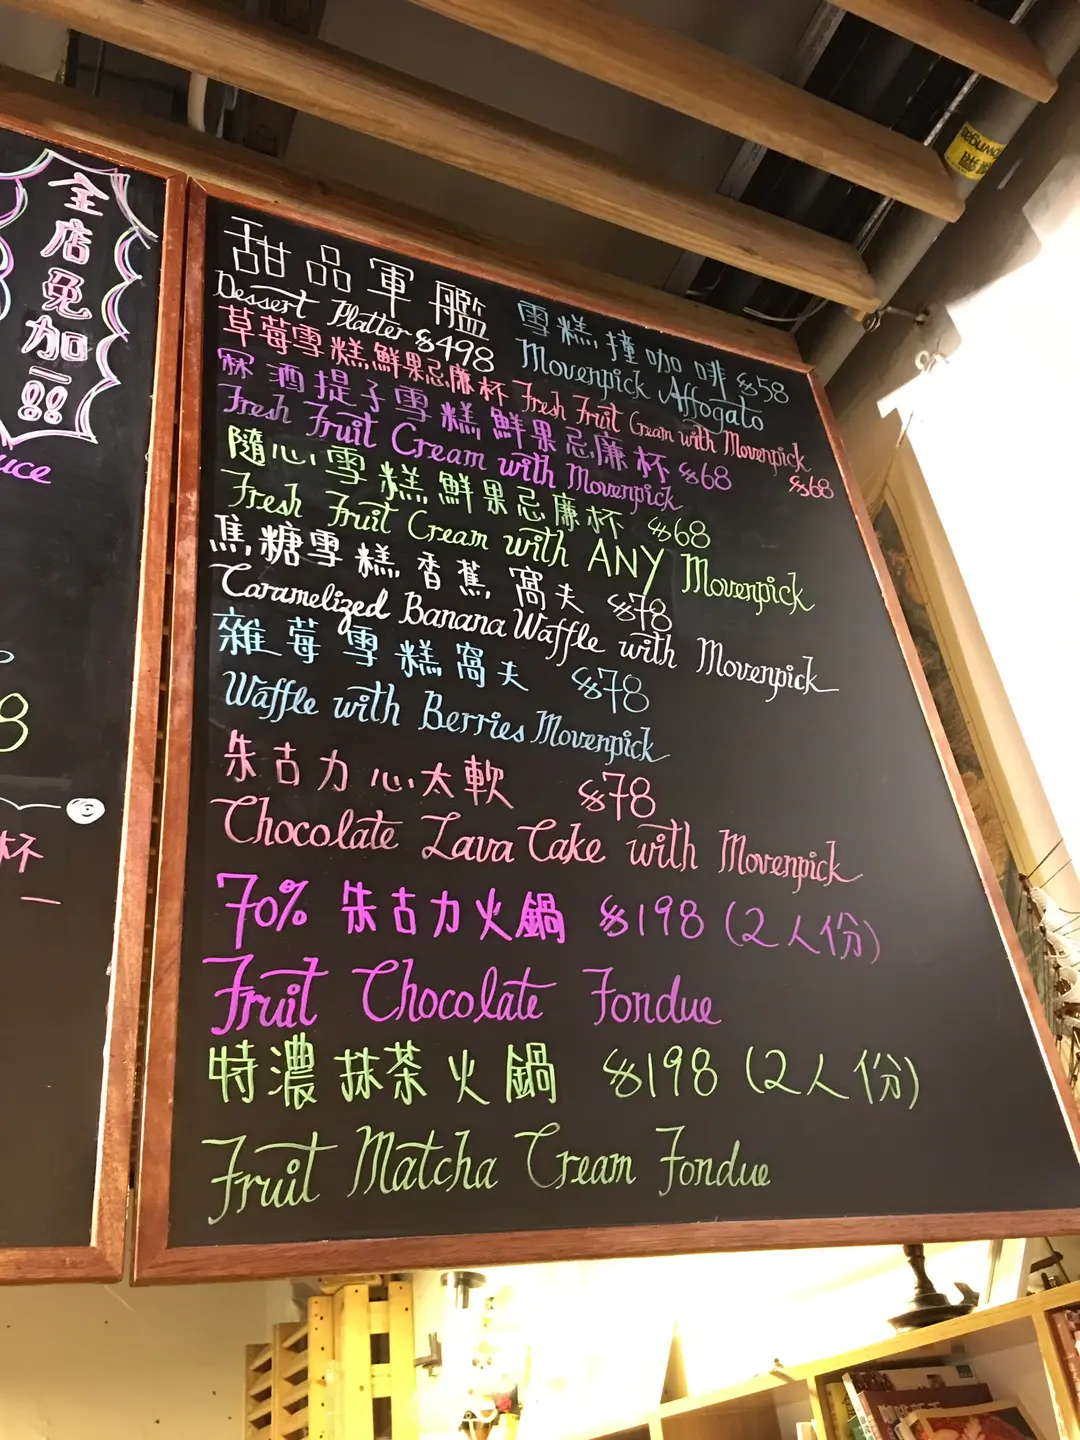 全店免加一!!
uce
8
杯
甜品軍艦
Dessert Platter $498
雪糕撞咖啡 $58
Movenpick Affogato
草莓雪糕鮮果忌廉杯 Fresh Fruit Cream with Movenpick
$68
冧酒提子雪糕鮮果忌廉杯 $68
Fresh Fruit Cream with Movenpick
隨心雪糕鮮果忌廉杯 $68
Fresh Fruit Cream with ANY Movenpick
焦糖雪糕香蕉窩夫 $78
Caramelized Banana Waffle with Movenpick
雜莓雪糕窩夫 $78
Waffle with Berries Movenpick
朱古力心太軟 $78
Chocolate Lava Cake with Movenpick
70% 朱古力火鍋 $198 (2人份)
Fruit Chocolate Fondue
特濃抹茶火鍋 $198 (2人份)
Fruit Matcha Cream Fondue